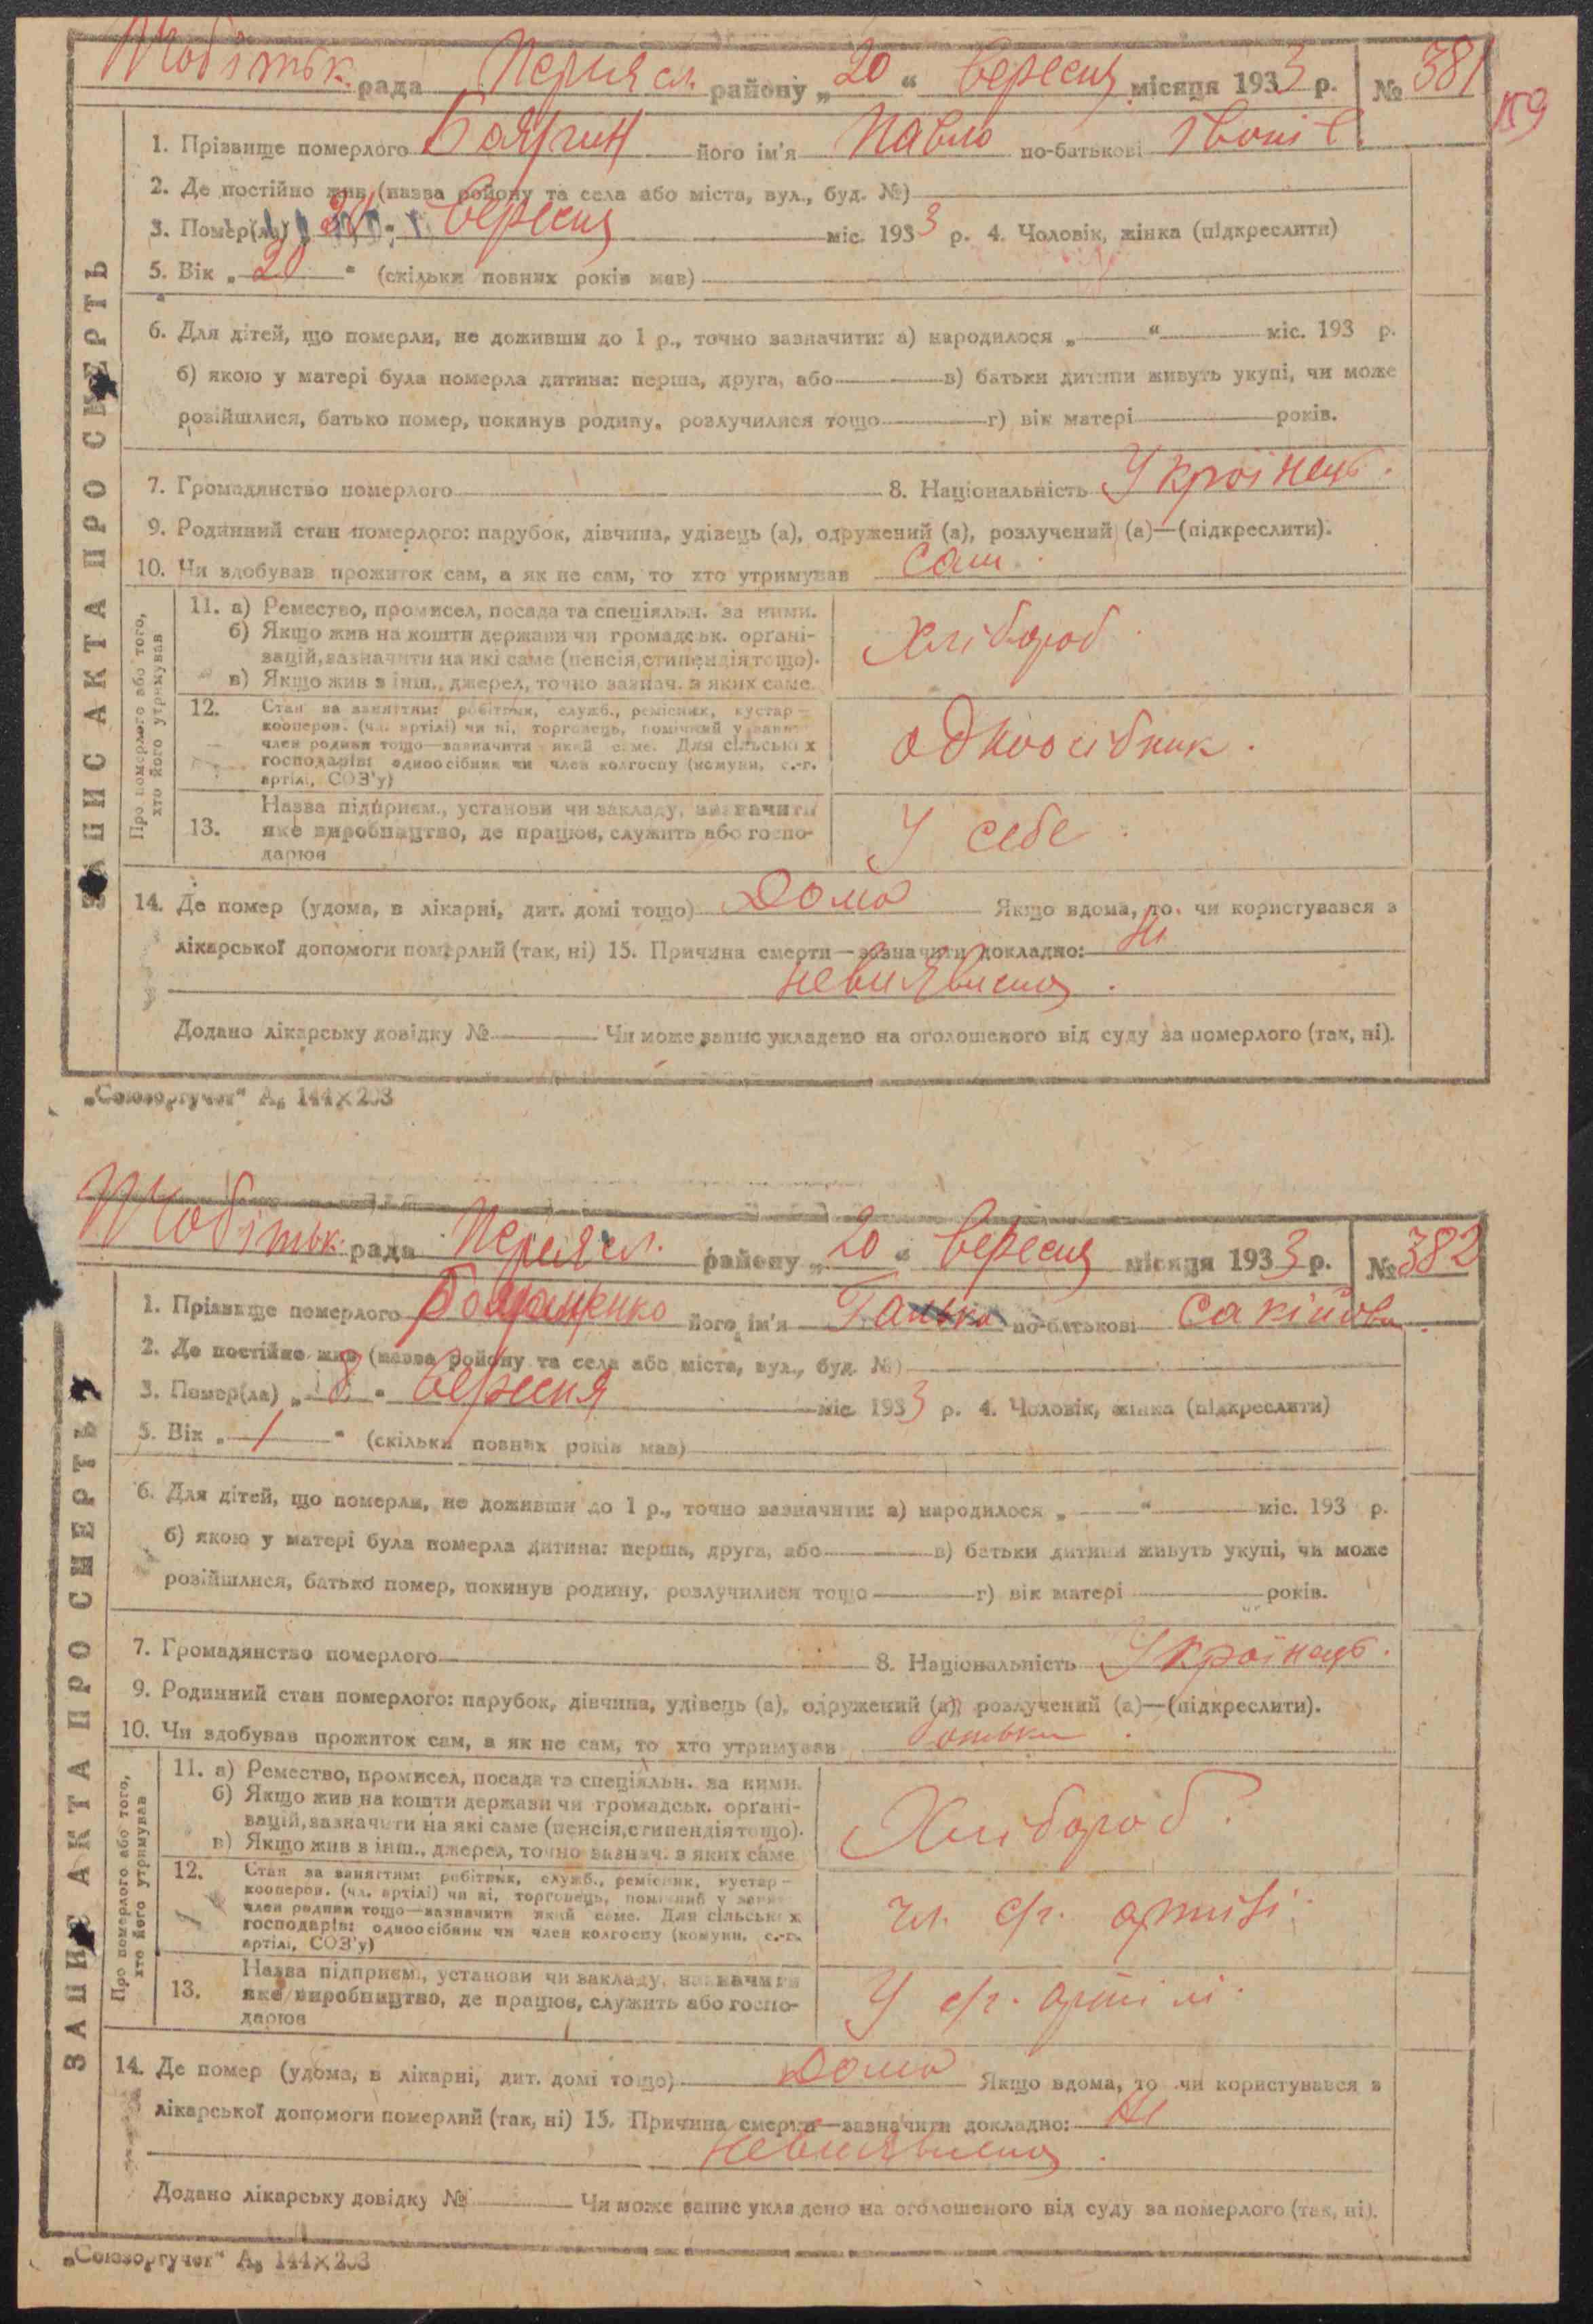 рада Переясл. району „20“ вересня місяця 1933 р. № 381
159
1. Прізвище померлого Бояргин його ім'я Павло по-батькові
2. Де постійно жив (назва району та села або міста, вул., буд. №)
3. Помер(ла) вересня міс. 1933 р. 4. Чоловік, жінка (підкреслити)
5. Вік „20“ (скільки повних років мав)
6. Для дітей, що померли, не доживши до 1 р., точно зазначити: а) народилося „ “ міс. 193 р.
б) якою у матері була померла дитина: перша, друга, або в) батьки дитини живуть укупі, чи може
розійшлися, батько помер, покинув родину, розлучилися тощо г) вік матері років.
7. Громадянство померлого 8. Національність Україінець.
9. Родинний стан померлого: парубок, дівчина, удівець (а), одружений (а), розлучений (а)—(підкреслити).
10. Чи здобував прожиток сам, а як не сам, то хто утримував сам.
ЗАПИС АКТА ПРО СМЕРТЬ
Про померлого або того,
хто його утримував
11. а) Ремество, промисел, посада та спеціяльн. за ними.
б) Якщо жив на кошти держави чи громадськ. органі-
зацій, зазначити на які саме (пенсія, стипендія тощо).
в) Якщо жив з інш., джерел, точно зазнач. з яких саме
Хлібороб
12. Стан за заняттям: робітник, служб., ремісник, кустар-
кооперов. (чл. артілі) чи ні, торговець,
член родини тощо—зазначити який саме. Для сільських
господарів: одноосібник чи член колгоспу (комуни, с.-г.
артілі, СОЗ'у)
одноосібник.
13. Назва підприєм., установи чи закладу, зазначити
яке виробництво, де працює, служить або госпо-
дарює
У себе
14. Де помер (удома, в лікарні, дит. домі тощо) Дома Якщо вдома, то чи користувався з
лікарської допомоги померлий (так, ні) 15. Причина смерти—зазначити докладно: Ні
невиявлена.
Додано лікарську довідку № Чи може запис укладено на оголошеного від суду за померлого (так, ні).
„Союзоргучет“ А₅ 144×203
рада Переясл. району „20“ вересня місяця 1933 р. № 382
1. Прізвище померлого його ім'я по-батькові
2. Де постійно жив (назва району та села або міста, вул., буд. №)
3. Помер(ла) „8“ вересня міс. 1933 р. 4. Чоловік, жінка (підкреслити)
5. Вік „1“ (скільки повних років мав)
6. Для дітей, що померли, не доживши до 1 р., точно зазначити: а) народилося „ “ міс. 193 р.
б) якою у матері була померла дитина: перша, друга, або в) батьки дитини живуть укупі, чи може
розійшлися, батько помер, покинув родину, розлучилися тощо г) вік матері років.
7. Громадянство померлого 8. Національність Українець.
9. Родинний стан померлого: парубок, дівчина, удівець (а), одружений (а), розлучений (а)—(підкреслити).
10. Чи здобував прожиток сам, а як не сам, то хто утримував батьки.
ЗАПИС АКТА ПРО СМЕРТЬ
Про померлого або того,
хто його утримував
11. а) Ремество, промисел, посада та спеціяльн. за ними.
б) Якщо жив на кошти держави чи громадськ. органі-
зацій, зазначити на які саме (пенсія, стипендія тощо).
в) Якщо жив з інш., джерел, точно зазнач. з яких саме
Хлібороб.
12. Стан за заняттям: робітник, служб., ремісник, кустар-
кооперов. (чл. артілі) чи ні, торговець,
член родини тощо—зазначити який саме. Для сільських
господарів: одноосібник чи член колгоспу (комуни, с.-г.
артілі, СОЗ'у)
чл. с/г. артілі.
13. Назва підприєм., установи чи закладу, зазначити
яке виробництво, де працює, служить або госпо-
дарює
У с/г. артілі.
14. Де помер (удома, в лікарні, дит. домі тощо) Дома Якщо вдома, то чи користувався з
лікарської допомоги померлий (так, ні) 15. Причина смерти—зазначити докладно: Ні
невиявлена.
Додано лікарську довідку № Чи може запис укладено на оголошеного від суду за померлого (так, ні).
„Союзоргучет“ А₅ 144×203